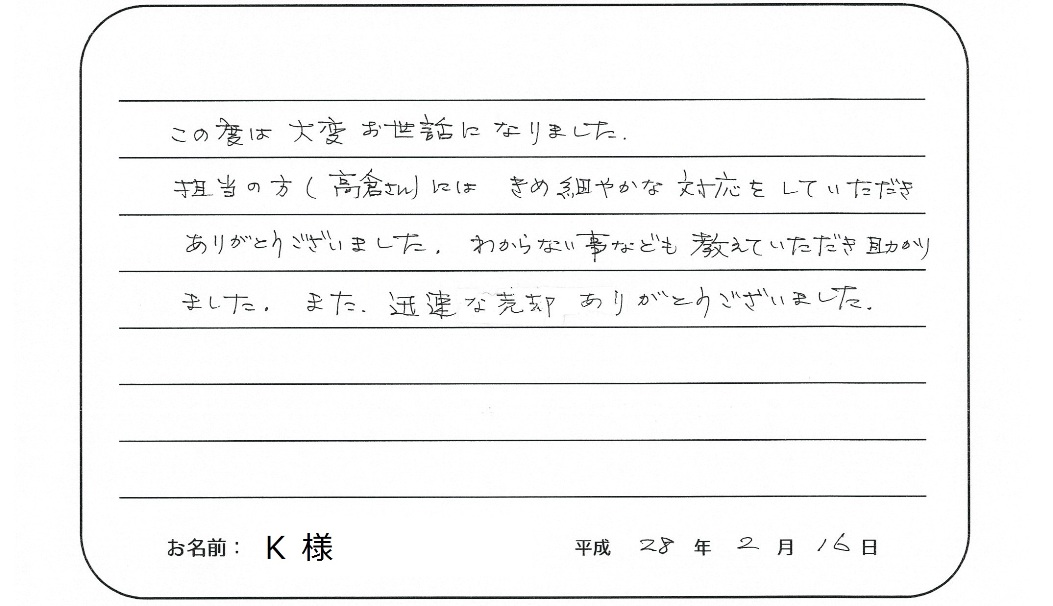 この度は 大変 お世話に なりました.
担当の方(高倉さん)には きめ細やかな 対応を していただき
ありがとうございました. わからない事なども 教えていただき助かり
ました. また. 迅速な売却 ありがとうございました.
お名前: K 様 平成 28 年 2 月 16 日